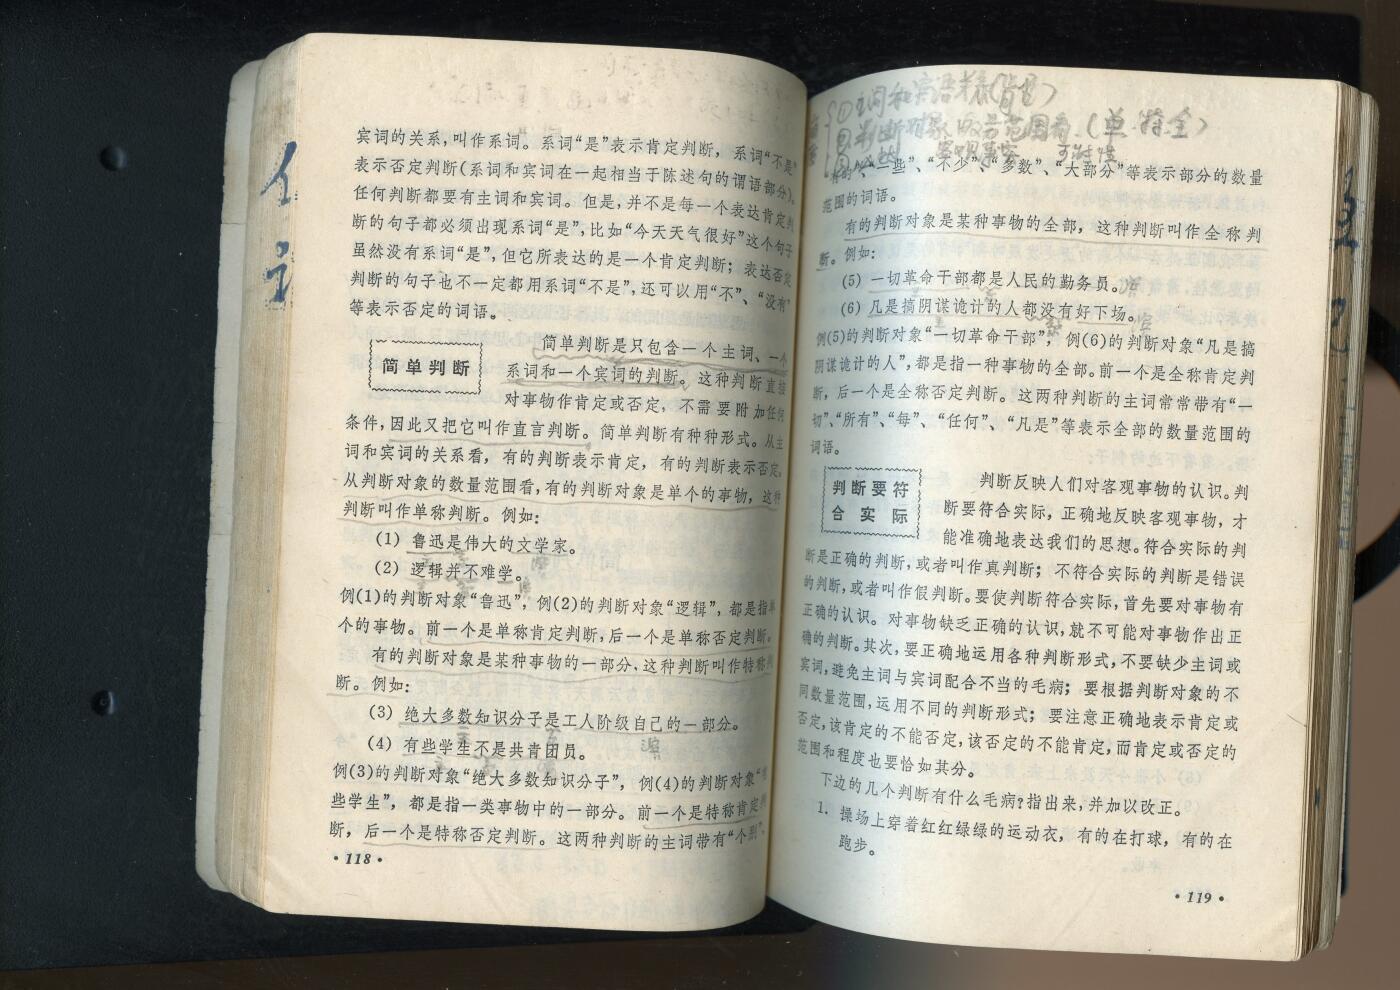 宾词的关系,叫作系词。系词“是”表示肯定判断,系词“不是”
表示否定判断(系词和宾词在一起相当于陈述句的谓语部分)。
任何判断都要有主词和宾词。但是,并不是每一个表达肯定判
断的句子都必须出现系词“是”,比如“今天天气很好”这个句子
虽然没有系词“是”,但它所表达的是一个肯定判断;表达否定
判断的句子也不一定都用系词“不是”,还可以用“不”、“没有”
等表示否定的词语。
简单判断
简单判断是只包含一个主词、一个
系词和一个宾词的判断。这种判断直接
对事物作肯定或否定,不需要附加任何
条件,因此又把它叫作直言判断。简单判断有种种形式。从主
词和宾词的关系看,有的判断表示肯定,有的判断表示否定。
从判断对象的数量范围看,有的判断对象是单个的事物,这种
判断叫作单称判断。例如:
(1) 鲁迅是伟大的文学家。
(2) 逻辑并不难学。
例(1)的判断对象“鲁迅”,例(2)的判断对象“逻辑”,都是指单
个的事物。前一个是单称肯定判断,后一个是单称否定判断。
有的判断对象是某种事物的一部分,这种判断叫作特称判
断。例如:
(3) 绝大多数知识分子是工人阶级自己的一部分。
(4) 有些学生不是共青团员。
例(3)的判断对象“绝大多数知识分子”,例(4)的判断对象“有
些学生”,都是指一类事物中的一部分。前一个是特称肯定判
断,后一个是特称否定判断。这两种判断的主词带有“个别”、
·118·
①主词和宾语关系(肯否)
②判断对象的范围看(单特全)
“有的”、“一些”、“不少”、“多数”、“大部分”等表示部分的数量
范围的词语。
有的判断对象是某种事物的全部,这种判断叫作全称判
断。例如:
(5) 一切革命干部都是人民的勤务员。
(6) 凡是搞阴谋诡计的人都没有好下场。
例(5)的判断对象“一切革命干部”,例(6)的判断对象“凡是搞
阴谋诡计的人”,都是指一种事物的全部。前一个是全称肯定判
断,后一个是全称否定判断。这两种判断的主词常常带有“一
切”、“所有”、“每”、“任何”、“凡是”等表示全部的数量范围的
词语。
判断要符
合实际
判断反映人们对客观事物的认识。判
断要符合实际,正确地反映客观事物,才
能准确地表达我们的思想。符合实际的判
断是正确的判断,或者叫作真判断;不符合实际的判断是错误
的判断,或者叫作假判断。要使判断符合实际,首先要对事物有
正确的认识。对事物缺乏正确的认识,就不可能对事物作出正
确的判断。其次,要正确地运用各种判断形式,不要缺少主词或
宾词,避免主词与宾词配合不当的毛病;要根据判断对象的不
同数量范围,运用不同的判断形式;要注意正确地表示肯定或
否定,该肯定的不能否定,该否定的不能肯定,而肯定或否定的
范围和程度也要恰如其分。
下边的几个判断有什么毛病?指出来,并加以改正。
1. 操场上穿着红红绿绿的运动衣,有的在打球,有的在
跑步。
·119·